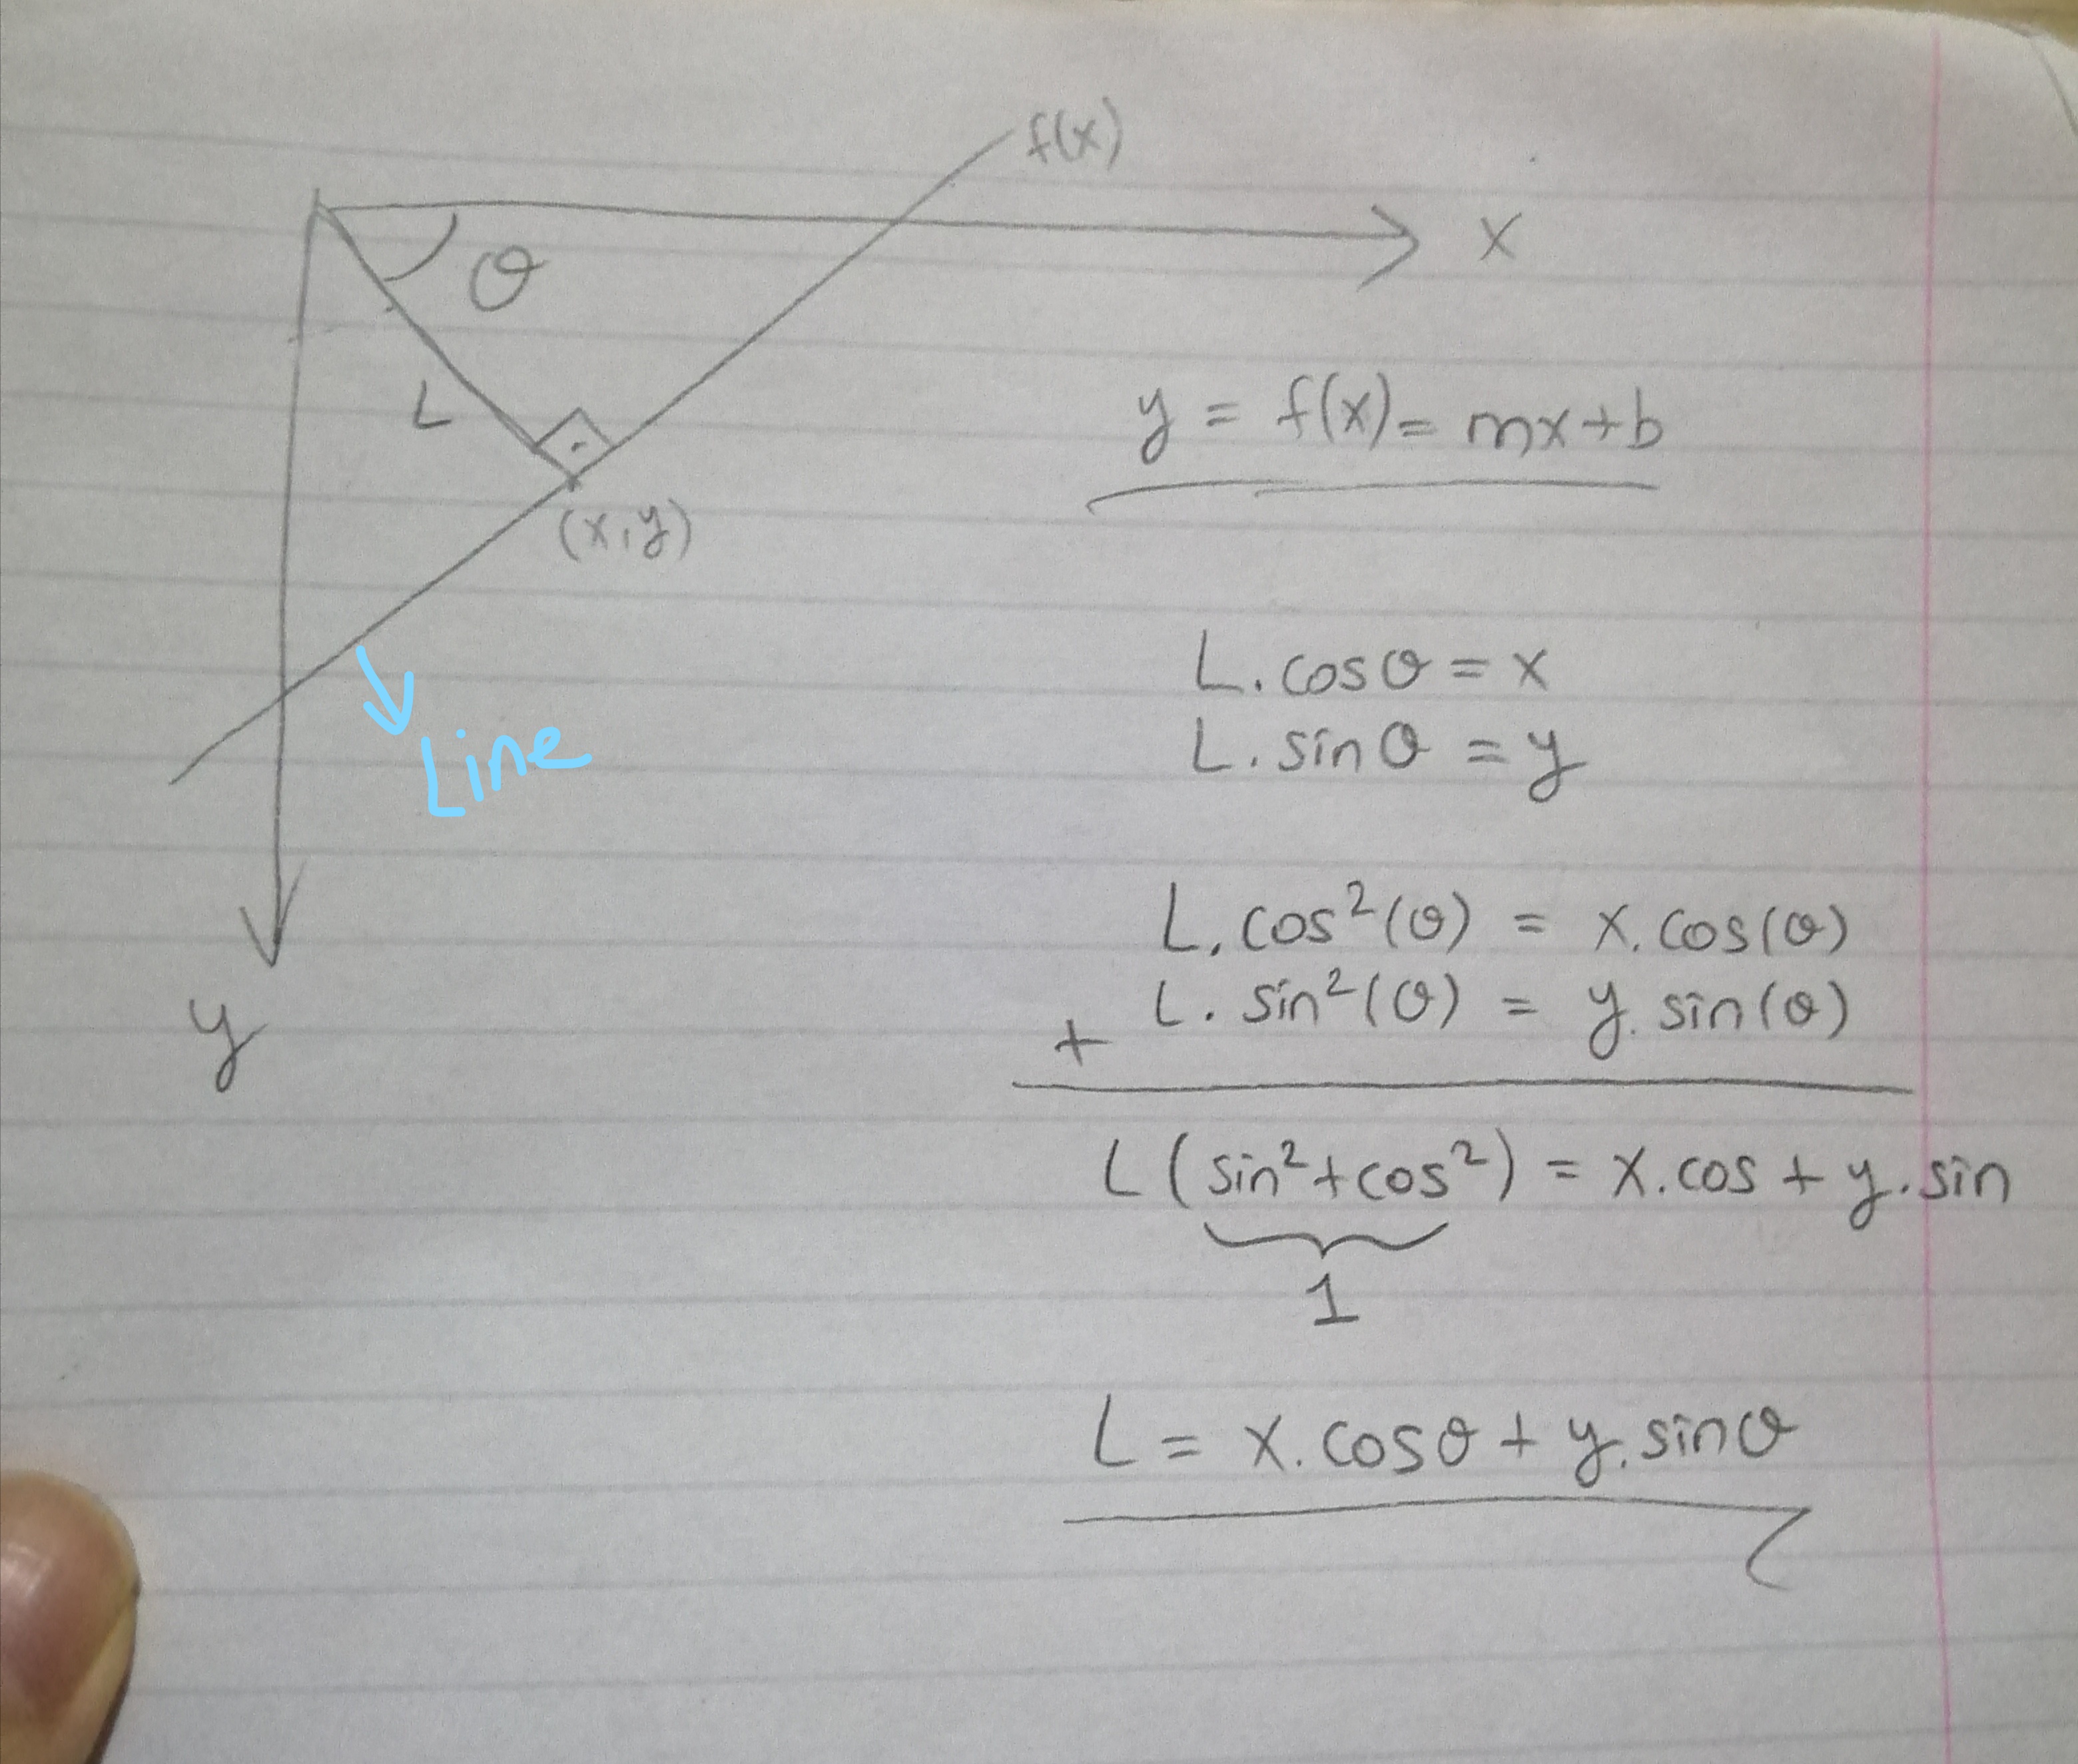 f(x)
x
θ
L
y = f(x) = mx+b
(x,y)
L.cosθ = x
Line
L.sinθ = y
L.cos²(θ) = x.cos(θ)
L.sin²(θ) = y.sin(θ)
y
+
L(sin²+cos²) = x.cos + y.sin
1
L = x.cosθ + y.sinθ